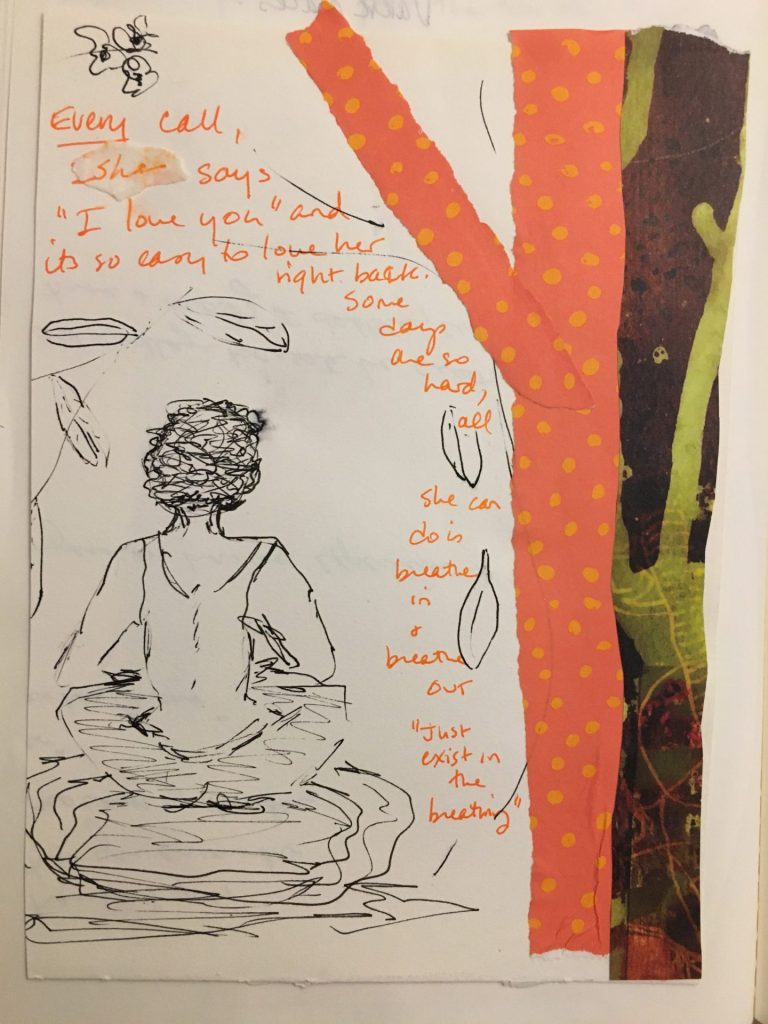 Every call,
she says
"I love you" and
its so easy to love her
right back.
Some
days
are so
hard,
all
she can
do is
breathe
in
&
breathe
out
"Just
exist in
the
breathing"